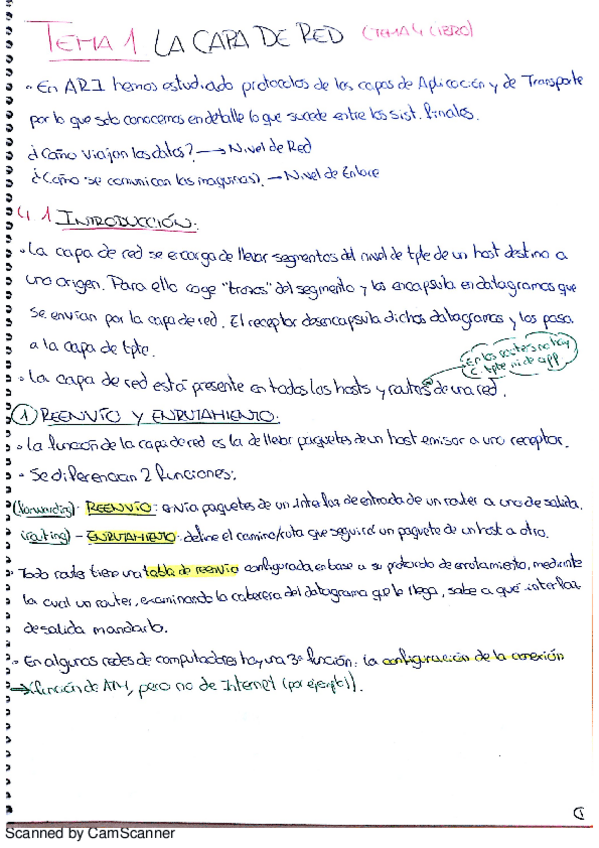 TEMA 1 LA CAPA DE RED (TEMA 4 LIBRO)
- En AR1 hemos estudiado protocolos de las capas de Aplicación y de Transporte
por lo que solo conocemos en detalle lo que sucede entre los sist. finales.
¿Cómo viajan los datos? → Nivel de Red
¿Cómo se comunican las maquinas? → Nivel de Enlace
4.1 INTRODUCCIÓN:
- La capa de red se encarga de llevar segmentos del nivel de tpte de un host destino a
uno origen. Para ello coge "trozos" del segmento y los encapsula en datagramas que
se envían por la capa de red. El receptor desencapsula dichos datagramas y los pasa
a la capa de tpte.
En los routers no hay
C. tpte ni de app
- La capa de red está presente en todos los hosts y routers de una red.
① REENVÍO Y ENRUTAMIENTO:
- La función de la capa de red es la de llevar paquetes de un host emisor a uno receptor.
- Se diferencian 2 funciones:
(forwarding) - REENVÍO: envía paquetes de un interfaz de entrada de un router a uno de salida.
(routing) - ENRUTAMIENTO: define el camino/ruta que seguirá un paquete de un host a otro.
- Todo router tiene una tabla de reenvío configurada en base a su protocolo de enrutamiento, mediante
la cual un router, examinando la cabecera del datagrama que le llega, sabe a qué interfaz
de salida mandarlo.
- En algunas redes de computadores hay una 3ª función: la configuración de la conexión
→ función de ATM, pero no de Internet (por ejemplo).
①
Scanned by CamScanner